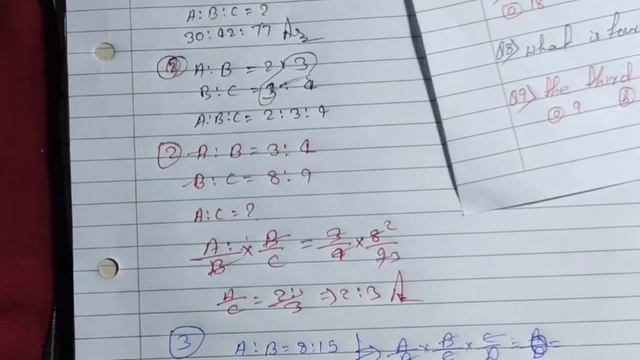 A:B:C = ?
30:42:77 Ans
② A:B = 2:3
B:C = 3:4
A:B:C = 2:3:4
② A:B = 3:4
B:C = 8:9
A:C = ?
A/B × B/C = 3/4 × 8²/9₃
A/C = 2:1/3 ⇒ 2:3 A
③ A:B = 8:15
A/B × B/C × C/D =
18
Q8) what is four
Q9) the third
9